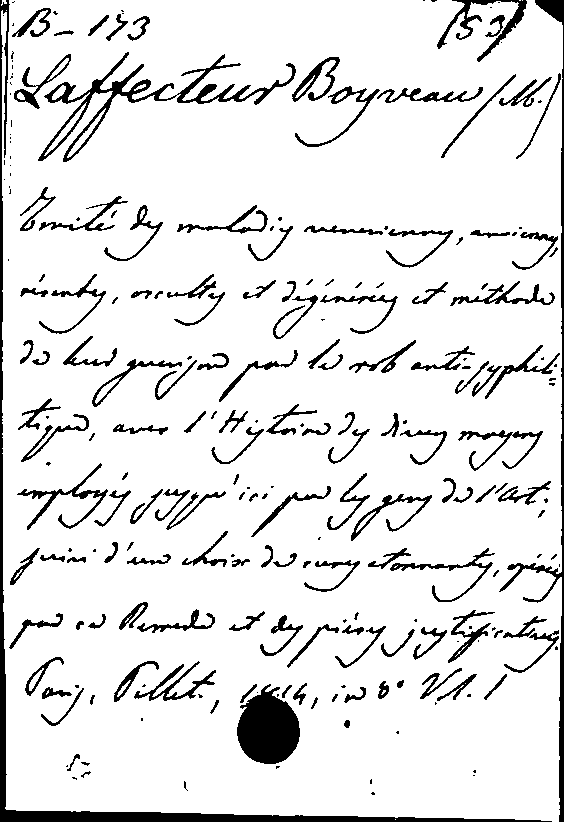 B-173 (53)
Laffecteur Boyveau (M.)
Traité des maladies veneriennes, anciennes,
récentes, occultes et dégénérées et méthode
de leur guerison par le rob anti-syphili-
tique, avec l'Histoire des divers moyens
employés jusqu'ici par les gens de l'Art;
suivi d'un choix de cures etonnantes, opérées
par ce Remede et des pièces justificatives.
Paris, Pillet, 1814, in 8° Vl. 1